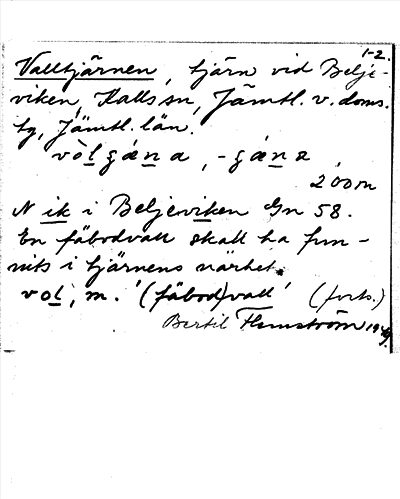 1-2.
Valltjärnen, tjärn vid Belje-
viken, Kalls sn, Jämtl. v. doms.
tg, Jämtl. län.
vòlgæna, -gæna
200 m
N ik i Beljeviken Gn 58.
En fäbodvall skall ha fun-
nits i tjärnens närhet.
vol, m. '(fäbod)vall' (forts.)
Bertil Flemström 19